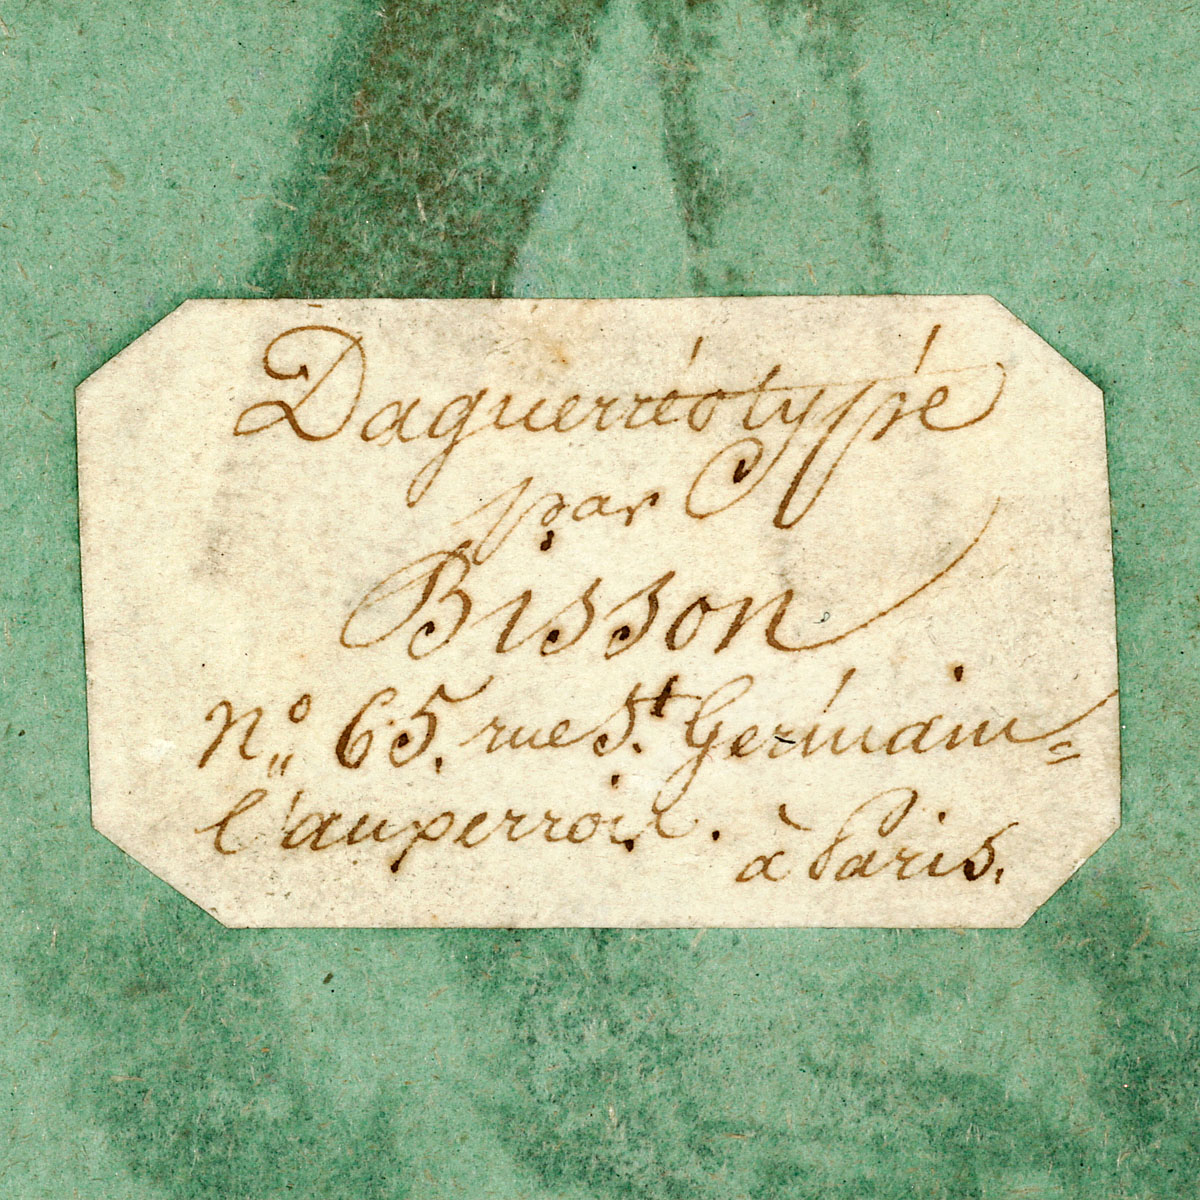 Daguerréotypé
par
Bisson
N.º 65. rue S.t Germain=
l'auxerroix.
à Paris.